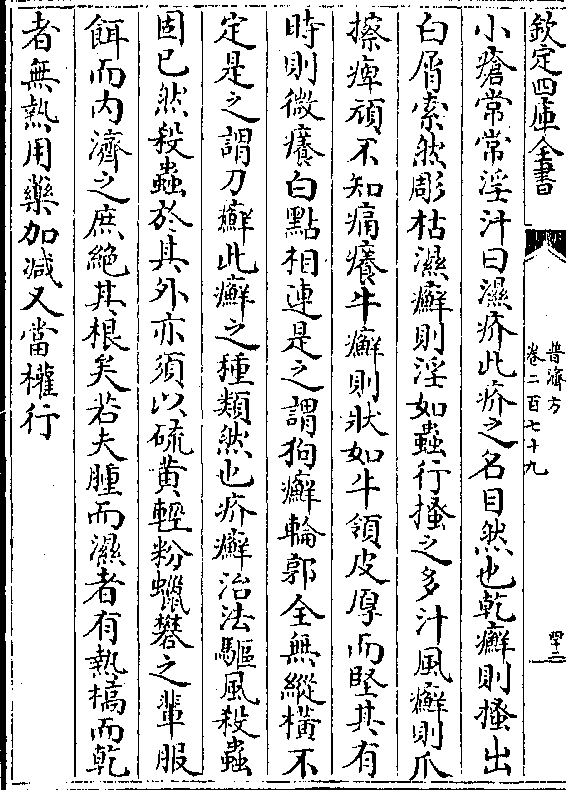 欽定四庫全書
普濟方
卷二百七十九
小瘡常常淫汁曰濕疥此疥之名目然也乾癬則搔出
白屑索然彫枯濕癬則淫如蟲行搔之多汁風癬則爪
擦痺頑不知痛癢牛癬則狀如牛領皮厚而堅其有
時則微癢白點相連是之謂狗癬輪郭全無縱橫不
定是之謂刀癬此癬之種類然也疥癬治法驅風殺蟲
固已然殺蟲於其外亦須以硫黄輕粉蠟礬之輩服
餌而内濟之庶絶其根矣若夫腫而濕者有熱槁而乾
者無熱用藥加減又當權行